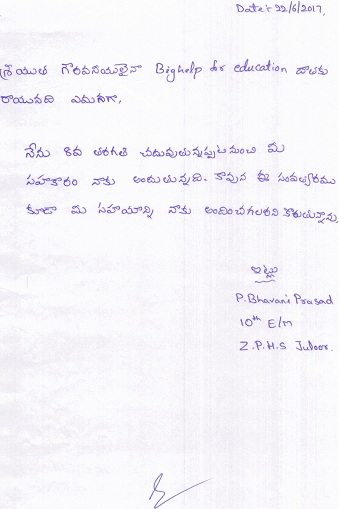 Date:- 22/6/2017.
శ్రీయుత గౌరవనీయులైన Bighelp for education దాతకు
రాయునది ఎమనగా,
నేను 8వ తరగతి చదువుతున్నప్పటినుంచి మీ
సహకారం నాకు అందుతున్నది. కావున ఈ సంవత్సరము
కూడా మీ సహయాన్ని నాకు అందించగలరని కొరుతున్నాను
ఇట్లు
P. Bhavani Prasad
10th E/M
Z.P.H.S Juloor.